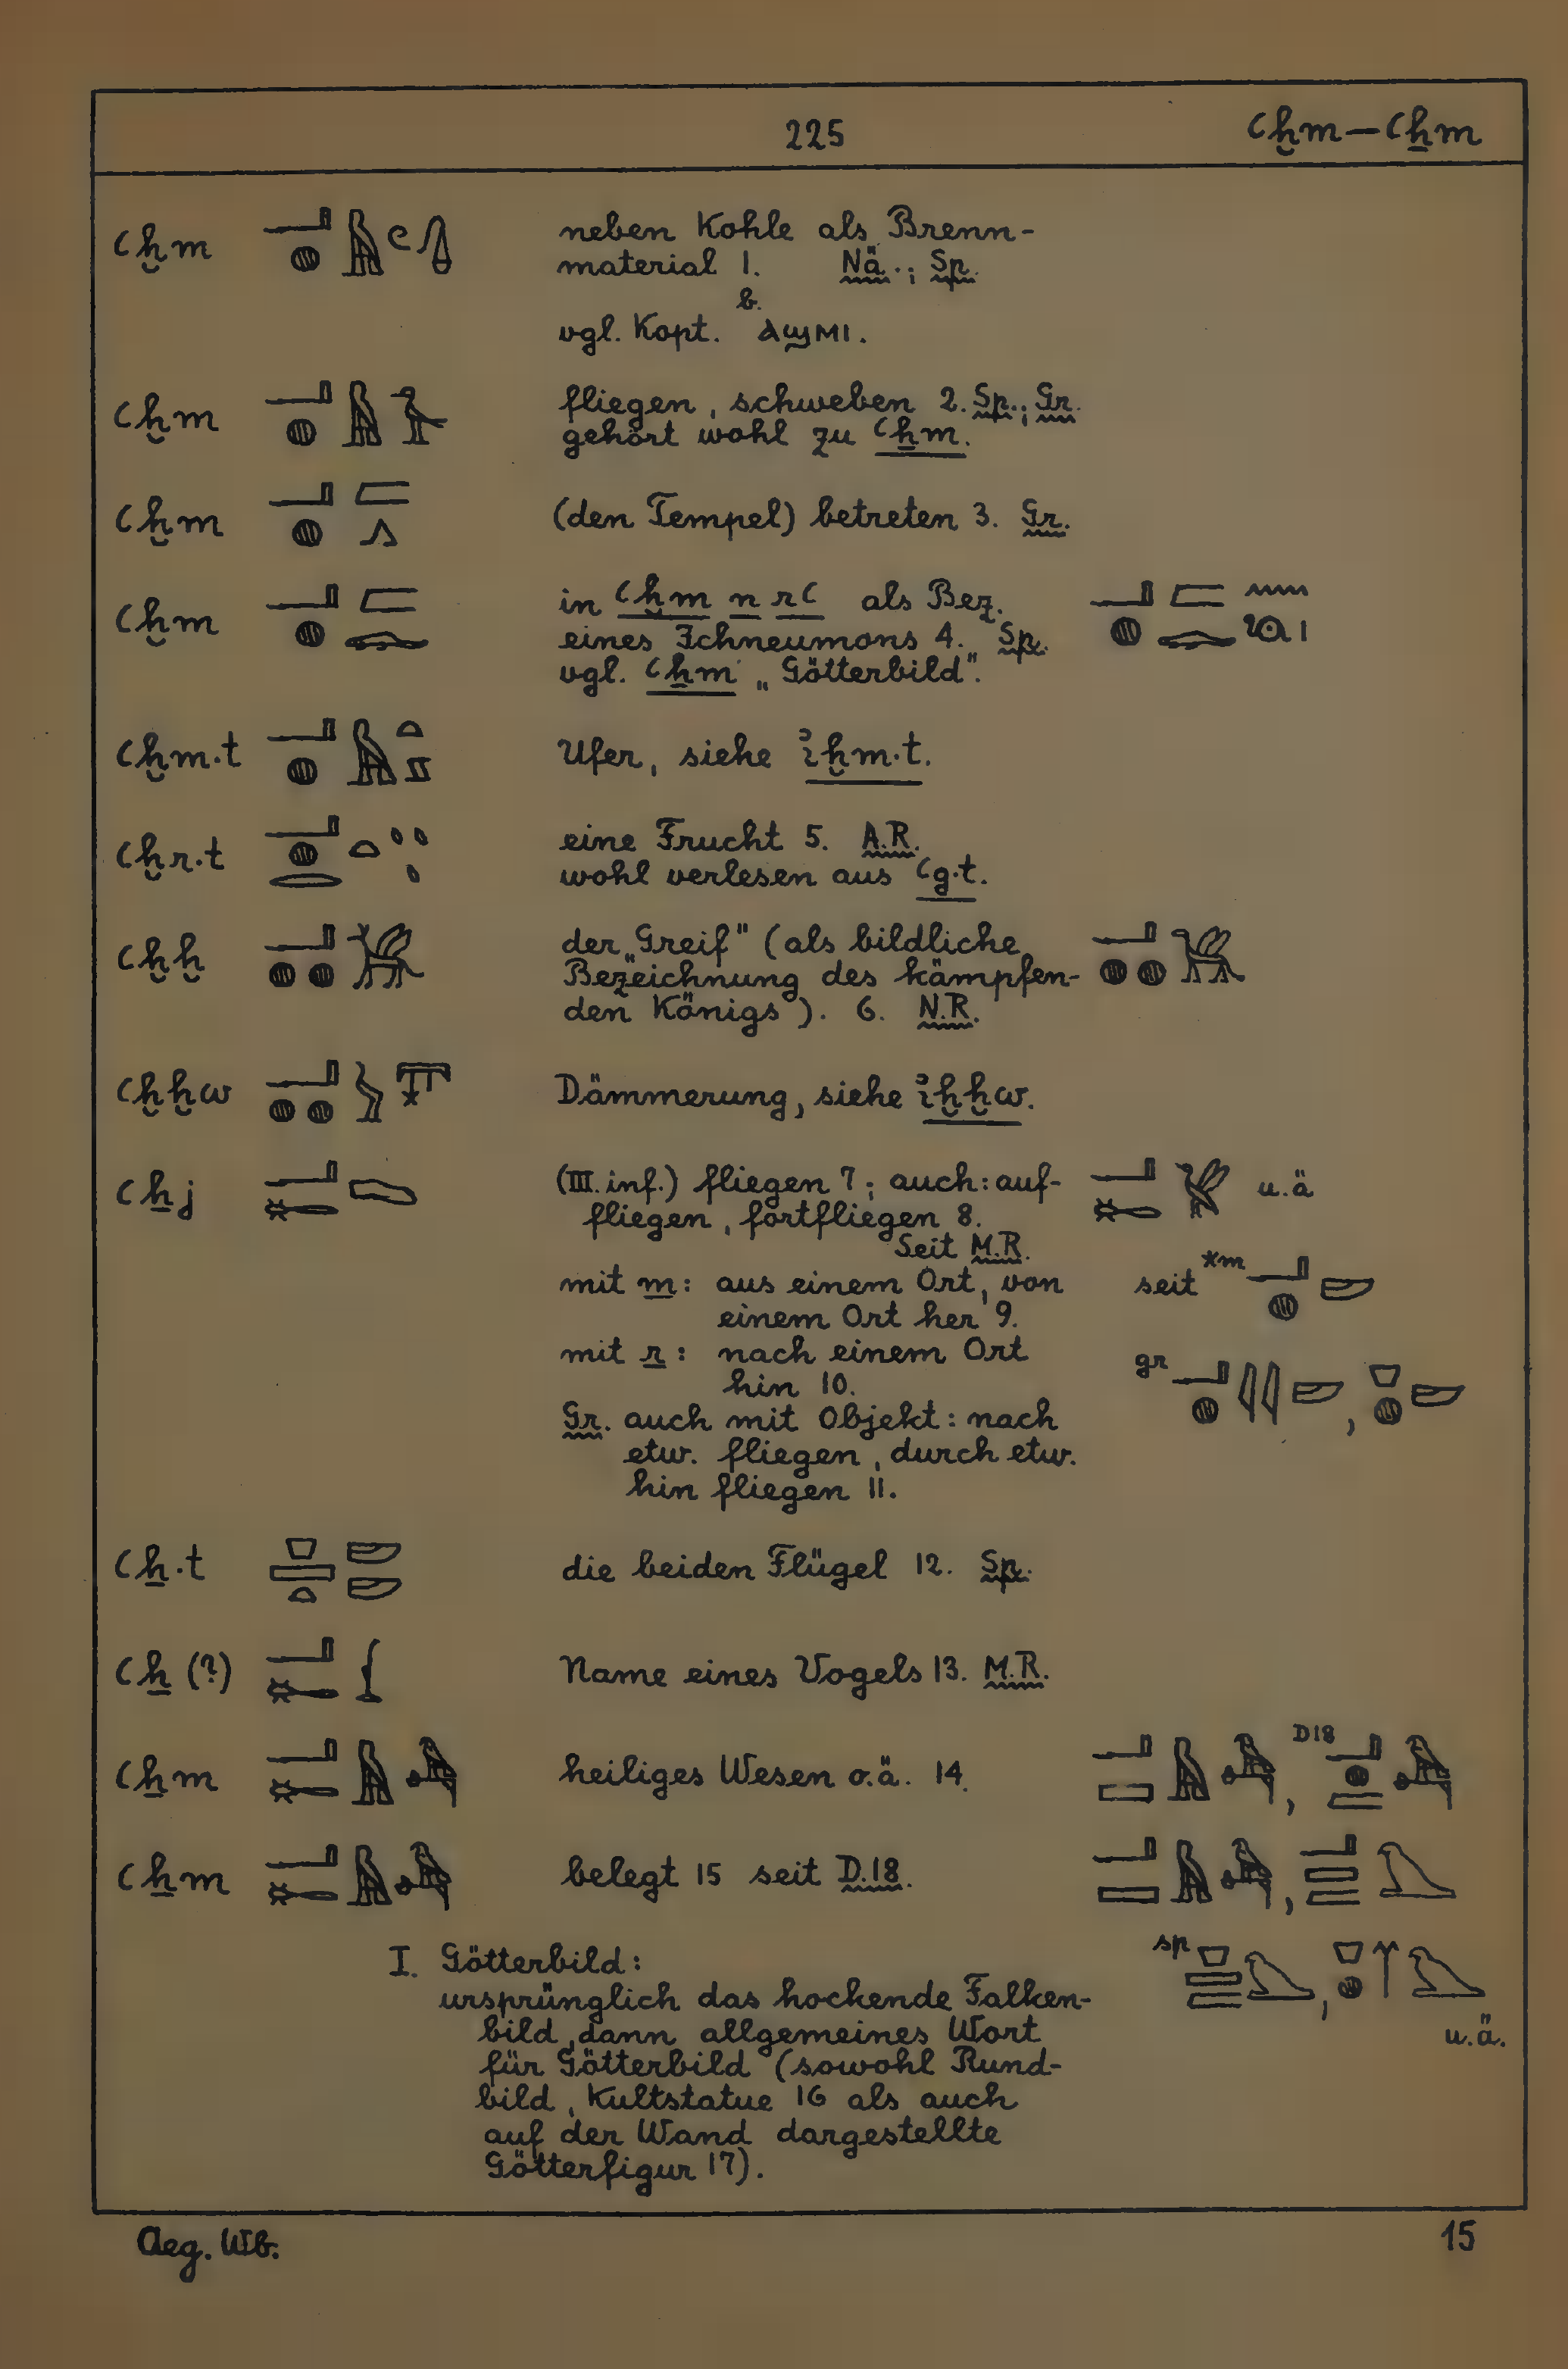 225 ꜥḫm — ꜥẖm
ꜥḫm neben Kohle als Brenn-
material 1. Nä.; Sp.
vgl. Kopt. b. ⲁϣⲙⲓ.
ꜥḫm fliegen, schweben 2. Sp.; Gr.
gehört wohl zu ꜥẖm.
ꜥḫm (den Tempel) betreten 3. Gr.
ꜥḫm in ꜥḫm n rꜥ als Bez.
eines Ichneumons 4. Sp.
vgl. ꜥẖm „Götterbild".
ꜥḫm·t Ufer, siehe ı͗ḫm·t.
ꜥḫr·t eine Frucht 5. A.R.
wohl verlesen aus ꜥg·t.
ꜥḫḫ der „Greif" (als bildliche
Bezeichnung des kämpfen-
den Königs). 6. N.R.
ꜥḫḫw Dämmerung, siehe ı͗ḫḫw.
ꜥẖj (III. inf.) fliegen 7; auch: auf- u.ä
fliegen, fortfliegen 8.
Seit M.R.
mit m: aus einem Ort, von seit *m
einem Ort her 9.
mit r: nach einem Ort gr
hin 10.
Gr. auch mit Objekt: nach
etw. fliegen, durch etw.
hin fliegen 11.
ꜥẖ·t die beiden Flügel 12. Sp.
ꜥẖ (?) Name eines Vogels 13. M.R.
ꜥẖm heiliges Wesen o.ä. 14. D18
ꜥẖm belegt 15 seit D.18.
I. Götterbild: sp
ursprünglich das hockende Falken-
bild, dann allgemeines Wort u.ä.
für Götterbild (sowohl Rund-
bild, Kultstatue 16 als auch
auf der Wand dargestellte
Götterfigur 17).
Aeg. Wb. 15